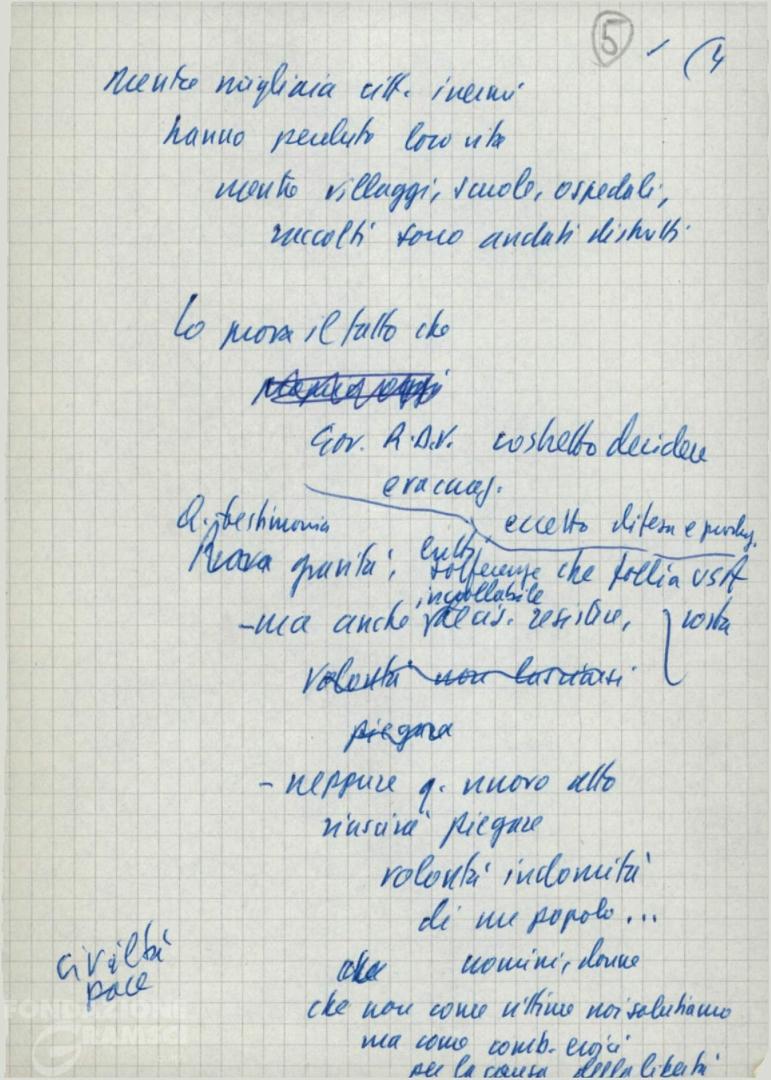 5 (4
mentre migliaia citt. inermi
hanno perduto loro vita
mentre villaggi, scuole, ospedali,
raccolti sono andati distrutti
Lo prova il fatto che
Gov. R.D.V. costretto decidere
evacuaz.
eccetto difesa e produz.
Q. testimonia
Prova gravità, sofferenze che follia USA
incrollabile
- ma anche decis. resistere, vostra
volontà non lasciarsi
piegare
- neppure q. nuovo atto
riuscirà piegare
volontà indomita
di un popolo...
civiltà
pace
che uomini, donne
che non come vittime noi salutiamo
ma come comb. eroici
per la causa della libertà
FONDAZIONE
GRAMSCI